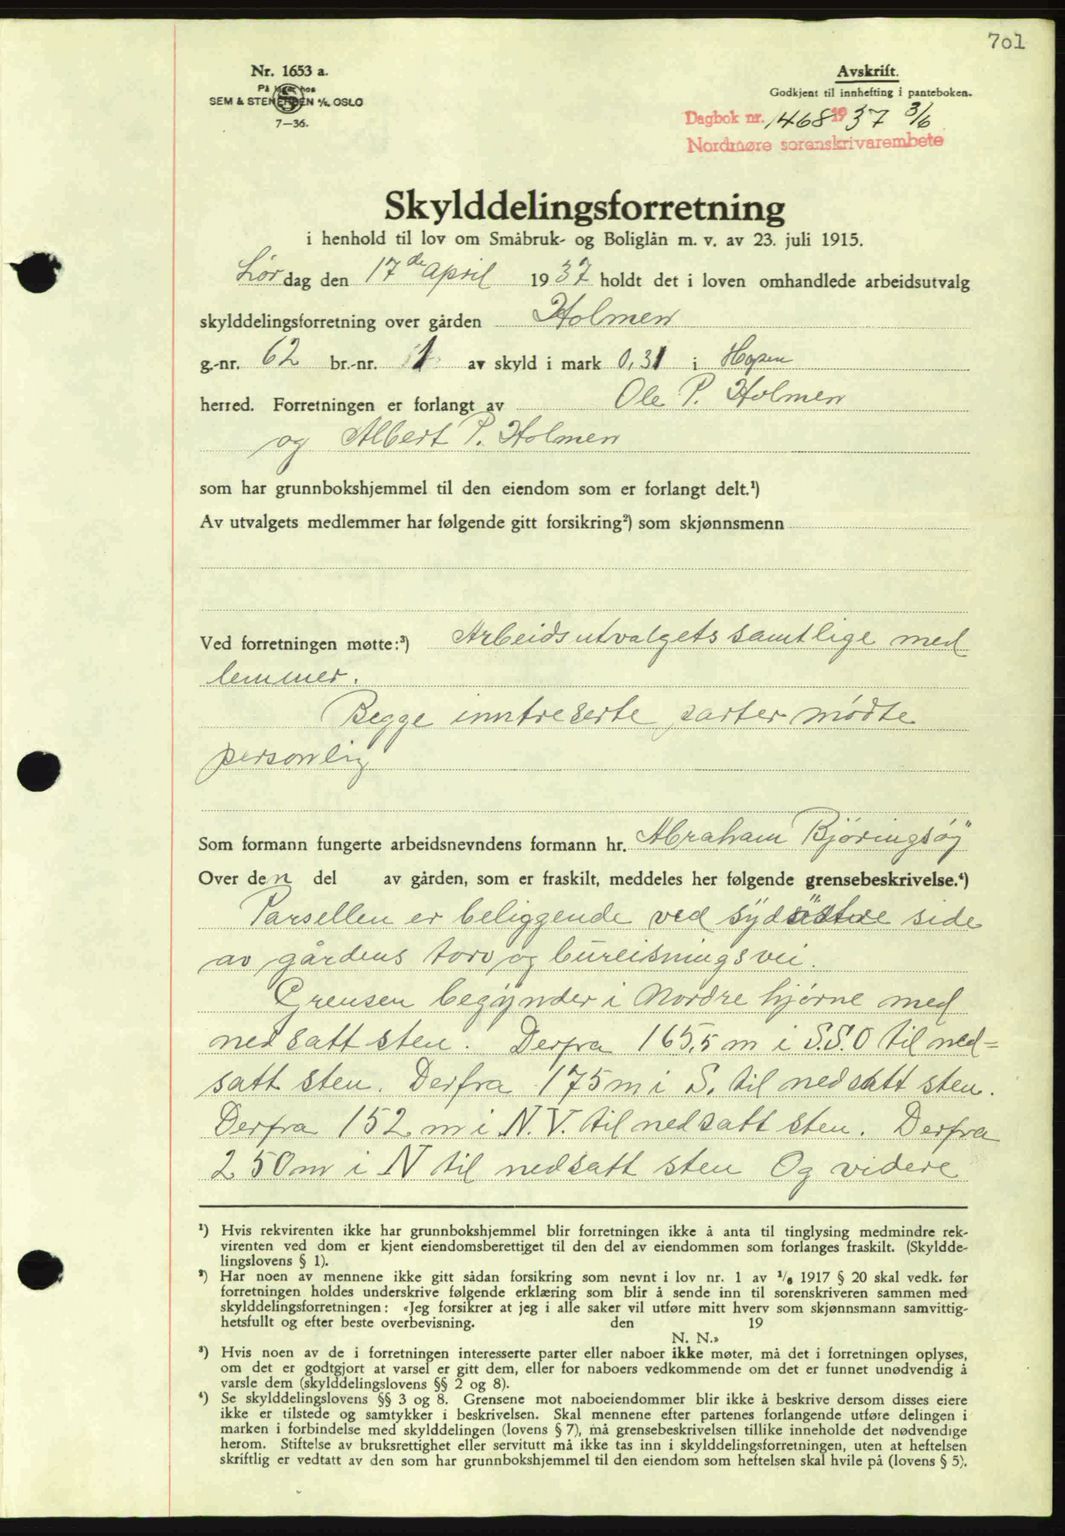 701
Nr. 1653 a.
På lager hos
SEM & STENERSEN A/S. OSLO
7—36.
Avskrift.
Godkjent til innhefting i panteboken.
Dagbok nr. 1468 1937 3/6
Nordmøre sorenskrivarembete
Skylddelingsforretning
i henhold til lov om Småbruk- og Boliglån m. v. av 23. juli 1915.
Lørdag den 17de April 1937 holdt det i loven omhandlede arbeidsutvalg
skylddelingsforretning over gården Holmen
g.-nr. 62 br.-nr. 1 av skyld i mark 0,31 i Hopen
herred. Forretningen er forlangt av Ole P. Holmen
og Albert P. Holmen
som har grunnbokshjemmel til den eiendom som er forlangt delt.¹)
Av utvalgets medlemmer har følgende gitt forsikring²) som skjønnsmenn
Ved forretningen møtte:³) Arbeidsutvalgets samtlige med
lemmer.
Begge inntreserte parter mødte
personlig
Som formann fungerte arbeidsnevndens formann hr. Abraham Bjøringsøy
Over den del av gården, som er fraskilt, meddeles her følgende grensebeskrivelse.⁴)
Parsellen er beliggende ved sydøstre side
av gårdens torv og bureisningsvei.
Grensen begynder i Nordre hjørne med
nedsatt sten. Derfra 165,5 m i S.S.O til ned=
satt sten. Derfra 175 m i S. til nedsatt sten.
Derfra 152 m i N.V. til nedsatt sten. Derfra
250 m i N til nedsatt sten Og videre
¹) Hvis rekvirenten ikke har grunnbokshjemmel blir forretningen ikke å anta til tinglysing medmindre rek-
virenten ved dom er kjent eiendomsberettiget til den del av eiendommen som forlanges fraskilt. (Skyldde-
lingslovens § 1).
²) Har noen av mennene ikke gitt sådan forsikring som nevnt i lov nr. 1 av 1/6 1917 § 20 skal vedk. før
forretningen holdes underskrive følgende erklæring som blir å sende inn til sorenskriveren sammen med
skylddelingsforretningen: «Jeg forsikrer at jeg i alle saker vil utføre mitt hverv som skjønnsmann samvittig-
hetsfullt og efter beste overbevisning. den 19
N. N.»
³) Hvis noen av de i forretningen interesserte parter eller naboer ikke møter, må det i forretningen oplyses,
om det er godtgjort at varsel er gitt dem, eller for naboers vedkommende om det er funnet unødvendig å
varsle dem (skylddelingslovens §§ 2 og 8).
⁴) Se skylddelingslovens §§ 3 og 8. Grensene mot naboeiendommer blir ikke å beskrive dersom disses eiere
ikke er tilstede og samtykker i beskrivelsen. Skal mennene efter partenes forlangende utføre delingen i
marken i forbindelse med skylddelingen (lovens § 7), må grensebeskrivelsen tillike inneholde det nødvendige
herom. Stiftelse av bruksrettighet eller servitutt må ikke tas inn i skylddelingsforretningen, uten at heftelsen
skriftlig er vedtatt av den som har grunnbokshjemmel til den eiendom som heftelsen skal hvile på (lovens § 5).